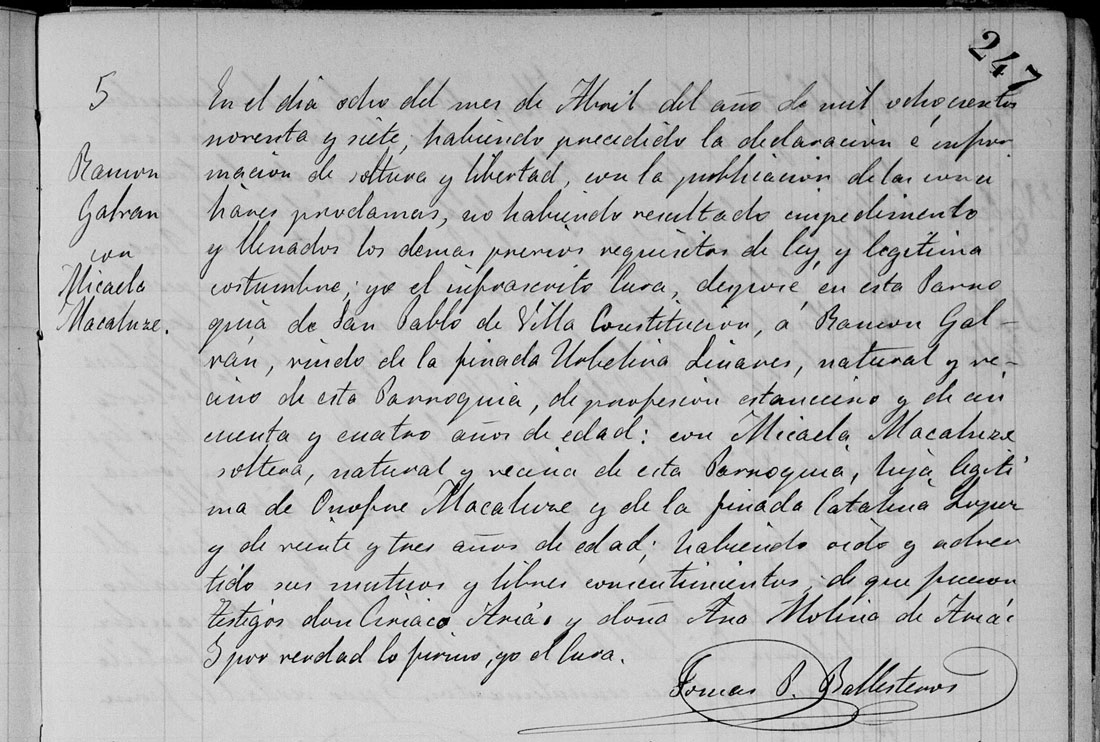 247
5
Ramon
Galvan
con
Micaela
Macaluze.
En el dia ocho del mes de Abril del año de mil ochocientos
noventa y siete, habiendo precedido la declaracion é infor
macion de soltura y libertad, con la publicacion de las conci
liares proclamas, no habiendo resultado impedimento
y llenados los demas previos requisitos de ley y legitima
costumbre; yo el infrascrito Cura, desposé en esta Parro
quia de San Pablo de Villa Constitucion, á Ramon Gal-
ván, viudo de la finada Urbelina Linares, natural y ve-
cino de esta Parroquia, de profesion estanciero y de cin
cuenta y cuatro años de edad: con Micaela Macaluze
soltera, natural y vecina de esta Parroquia, hija legiti
ma de Onofre Macaluze y de la finada Catalina Lopez
y de veinte y tres años de edad; habiendo oido y adver
tido sus mutuos y libres consentimientos, de que fueron
testigos don Ciriaco Arias y doña Ana Molina de Arias
Y por verdad lo firmo, yo el Cura.
Tomas P. Ballesteros